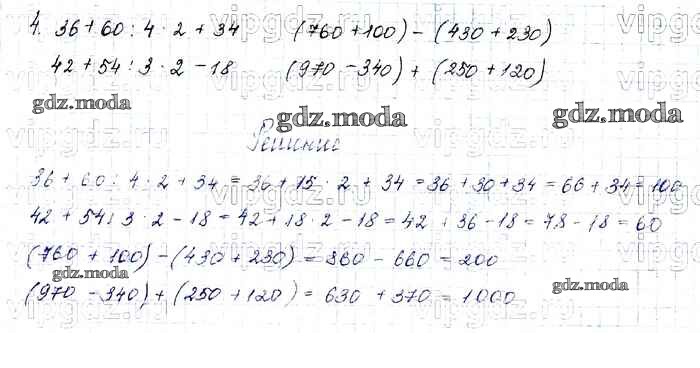 4. 36 + 60 : 4 · 2 + 34 (760 + 100) - (430 + 230)
42 + 54 : 3 · 2 - 18 (970 - 340) + (250 + 120)
gdz.moda gdz.moda gdz.moda
Решение
36 + 60 : 4 · 2 + 34 = 36 + 15 · 2 + 34 = 36 + 30 + 34 = 66 + 34 = 100
42 + 54 : 3 · 2 - 18 = 42 + 18 · 2 - 18 = 42 + 36 - 18 = 78 - 18 = 60
(760 + 100) - (430 + 230) = 860 - 660 = 200
gdz.moda gdz.moda
(970 - 340) + (250 + 120) = 630 + 370 = 1000
vipgdz.ru